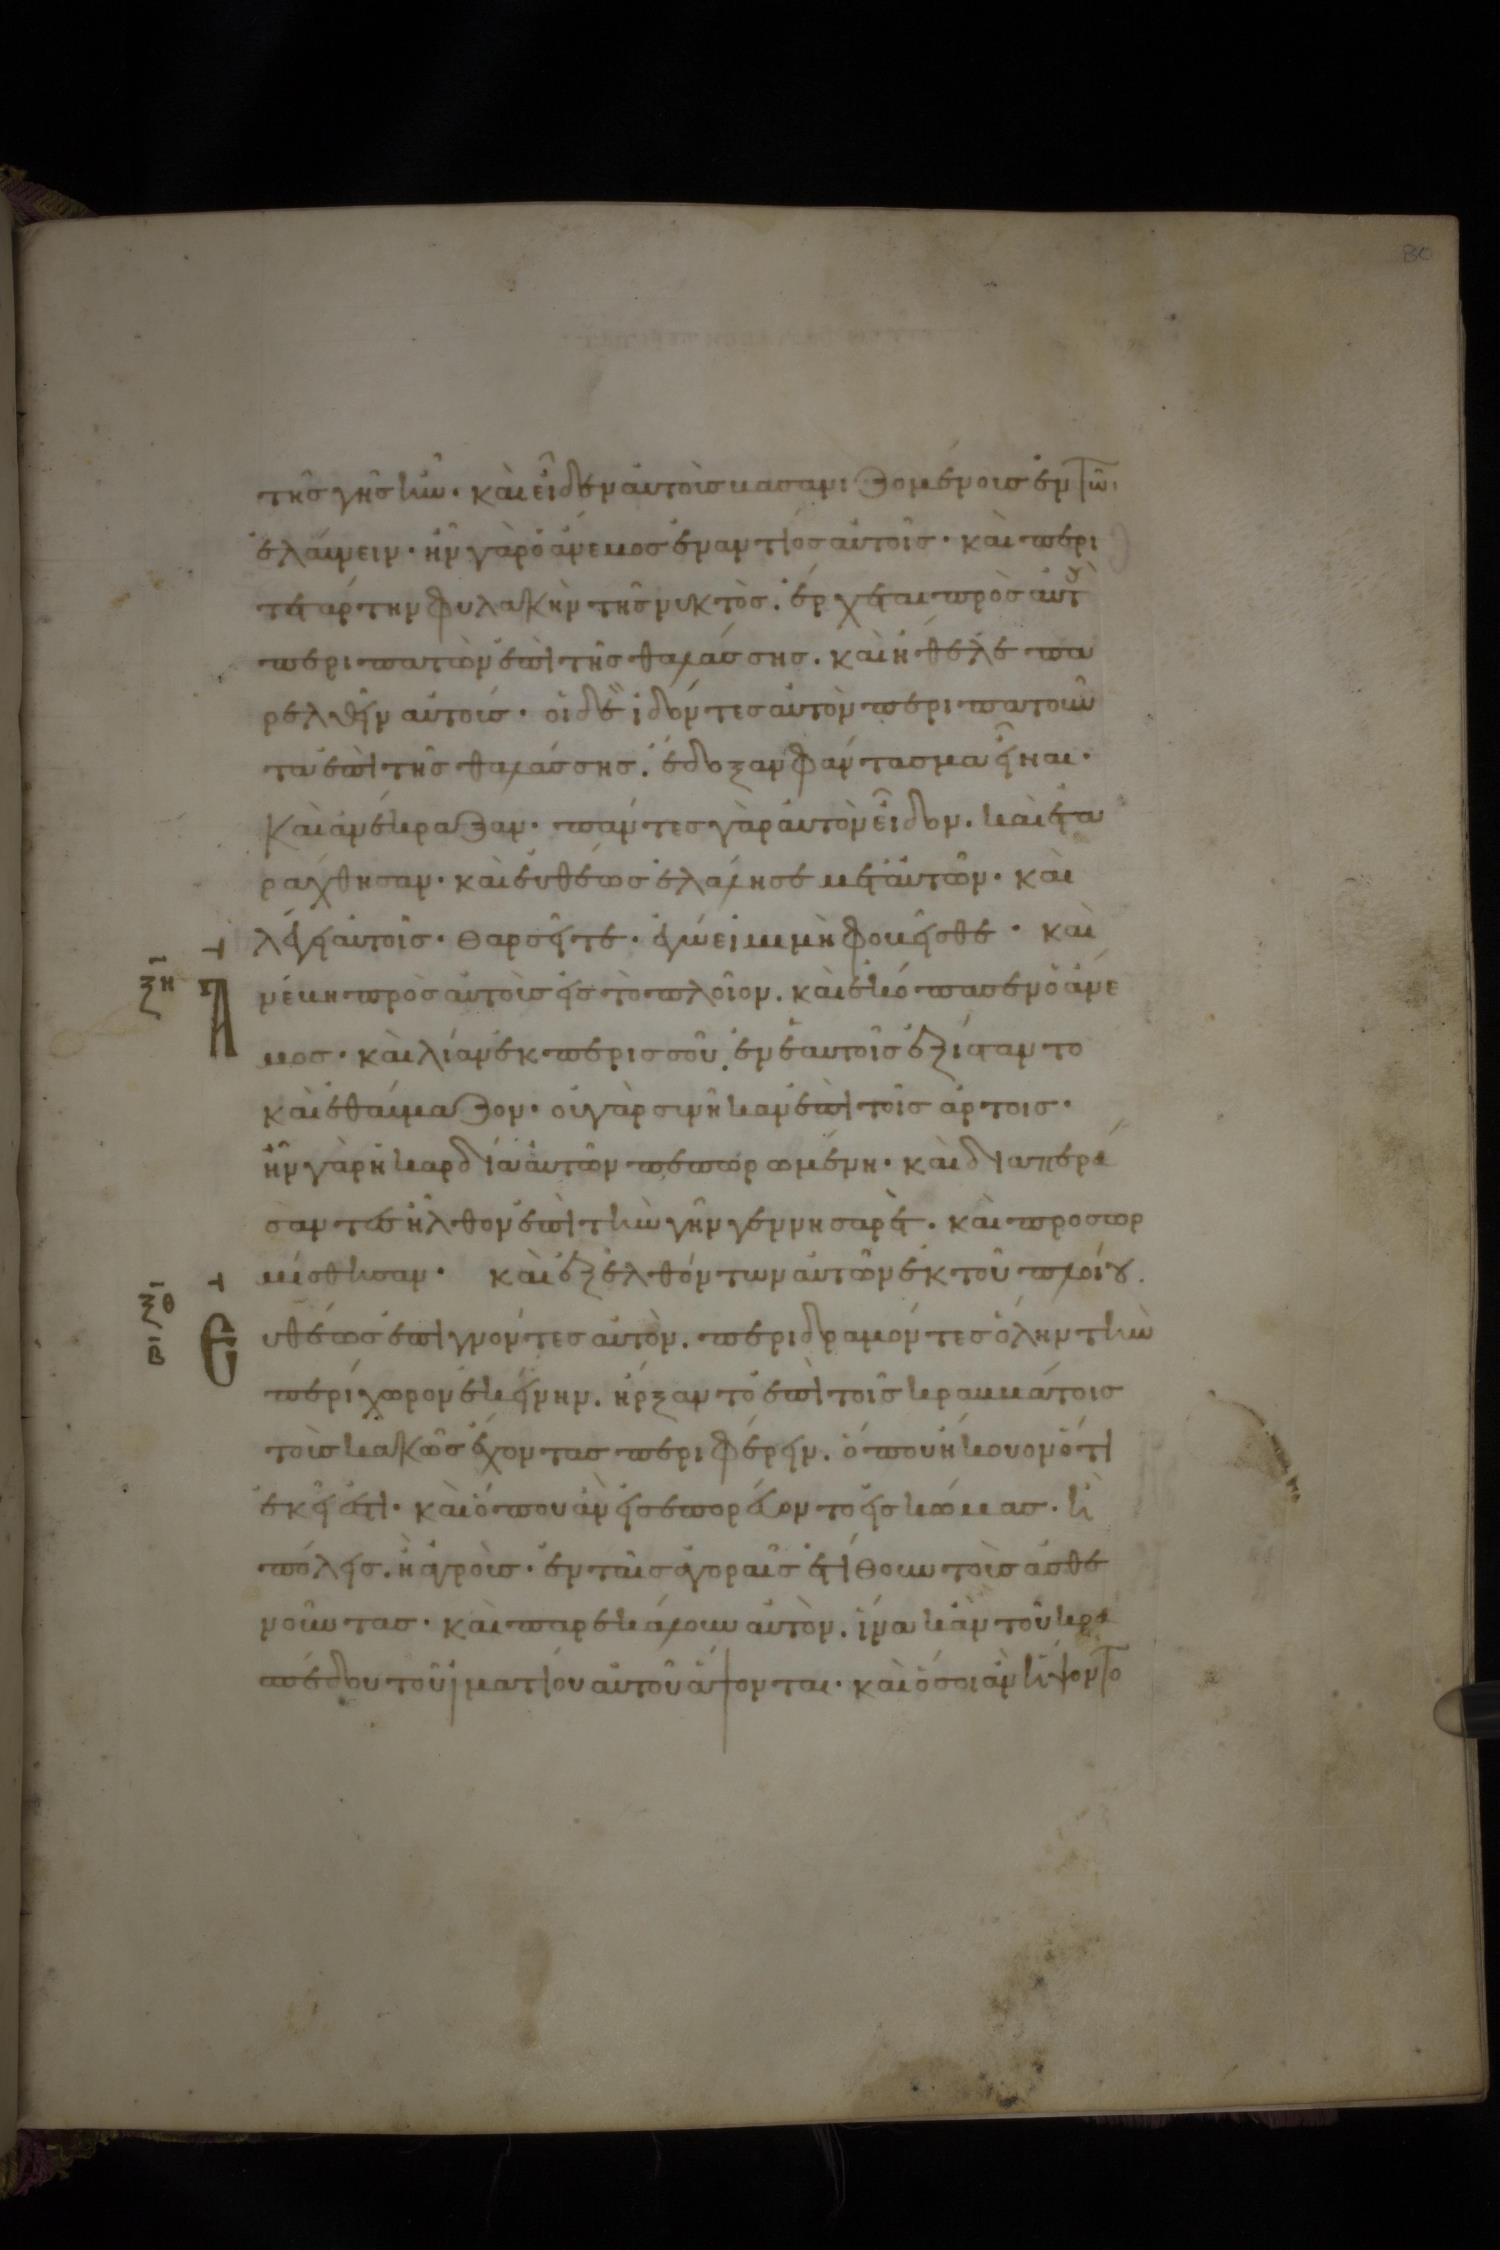 80
τῆς γῆς ἦν. καὶ εἶδεν αὐτοὺς βασανιζομένους ἐν τῶ
ἐλαύνειν. ἦν γὰρ ὁ ἄνεμος ἐναντίος αὐτοῖς. καὶ περὶ
τετάρτην φυλακὴν τῆς νυκτὸς. ἔρχεται πρὸς αὐτοὺς
περιπατῶν ἐπὶ τῆς θαλάσσης. καὶ ἤθελε πα
ρελθεῖν αὐτούς. οἱ δὲ ἰδόντες αὐτὸν περιπατοῦν
τα ἐπὶ τῆς θαλάσσης. ἔδοξαν φάντασμα εἶναι.
καὶ ἀνέκραξαν. πάντες γὰρ αὐτὸν εἶδον. καὶ ἐτα
ράχθησαν. καὶ εὐθέως ἐλάλησε μετ' αὐτῶν. καὶ
λέγει αὐτοῖς. θαρσεῖτε. ἐγώ εἰμι μὴ φοβεῖσθε. καὶ
ξη Ἀ
νέβη πρὸς αὐτοὺς εἰς τὸ πλοῖον. καὶ ἐκόπασεν ὁ ἄνε
μος. καὶ λίαν ἐκ περισσοῦ ἐν ἑαυτοῖς ἐξίσταντο
καὶ ἐθαύμαζον. οὐ γὰρ συνῆκαν ἐπὶ τοῖς ἄρτοις.
ἦν γὰρ ἡ καρδία αὐτῶν πεπωρωμένη. καὶ διαπερά
σαντες ἦλθον ἐπὶ τὴν γῆν γεννησαρέτ. καὶ προσωρ
μίσθησαν. καὶ ἐξελθόντων αὐτῶν ἐκ τοῦ πλοίου.
ξθ β Ε
υθέως ἐπιγνόντες αὐτὸν. περιδραμόντες ὅλην τὴν
περίχωρον ἐκείνην. ἤρξαντο ἐπὶ τοῖς κραββάτοις
τοὺς κακῶς ἔχοντας περιφέρειν. ὅπου ἤκουον ὅτι
ἐκεῖ ἐστι. καὶ ὅπου ἂν εἰσεπορεύοντο εἰς κώμας. ἢ
πόλεις. ἢ ἀγροὺς. ἐν ταῖς ἀγοραῖς ἐτίθουν τοὺς ἀσθε
νοῦντας. καὶ παρεκάλουν αὐτὸν. ἵνα κἂν τοῦ κρα
σπέδου τοῦ ἱματίου αὐτοῦ ἅψονται. καὶ ὅσοι ἂν ἥψοντο